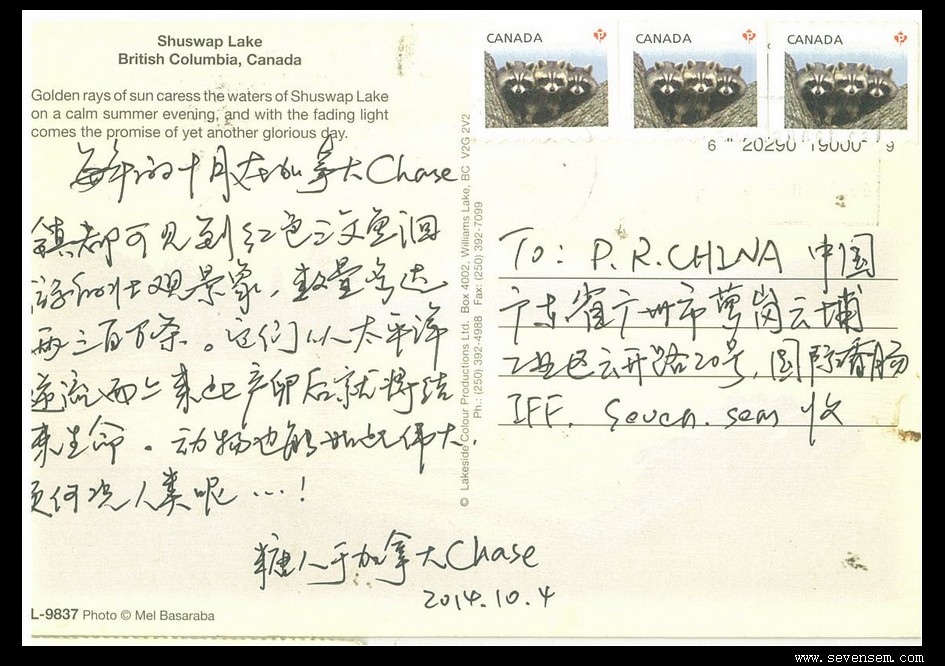 Shuswap Lake
British Columbia, Canada
Golden rays of sun caress the waters of Shuswap Lake
on a calm summer evening, and with the fading light
comes the promise of yet another glorious day.
每年的十月在加拿大Chase
镇都可见到红色三文鱼洄
游的壮观景象，数量多达
两三百万条。它们从太平洋
逆流而上来此产卵后就将结
束生命。动物也能如此伟大，
更何况人类呢…！
糖人于加拿大Chase
2014.10.4
L-9837 Photo © Mel Basaraba
© Lakeside Colour Productions Ltd. Box 4002, Williams Lake, BC V2G 2V2
Ph.: (250) 392-4988 Fax: (250) 392-7099
CANADA P
CANADA P
CANADA P
6 " 20290 19000 9
To: P.R.CHINA 中国
广东省广州市萝岗云埔
工业区云开路20号，国际香肠
IFF. Seven.sem 收
www.sevensem.com